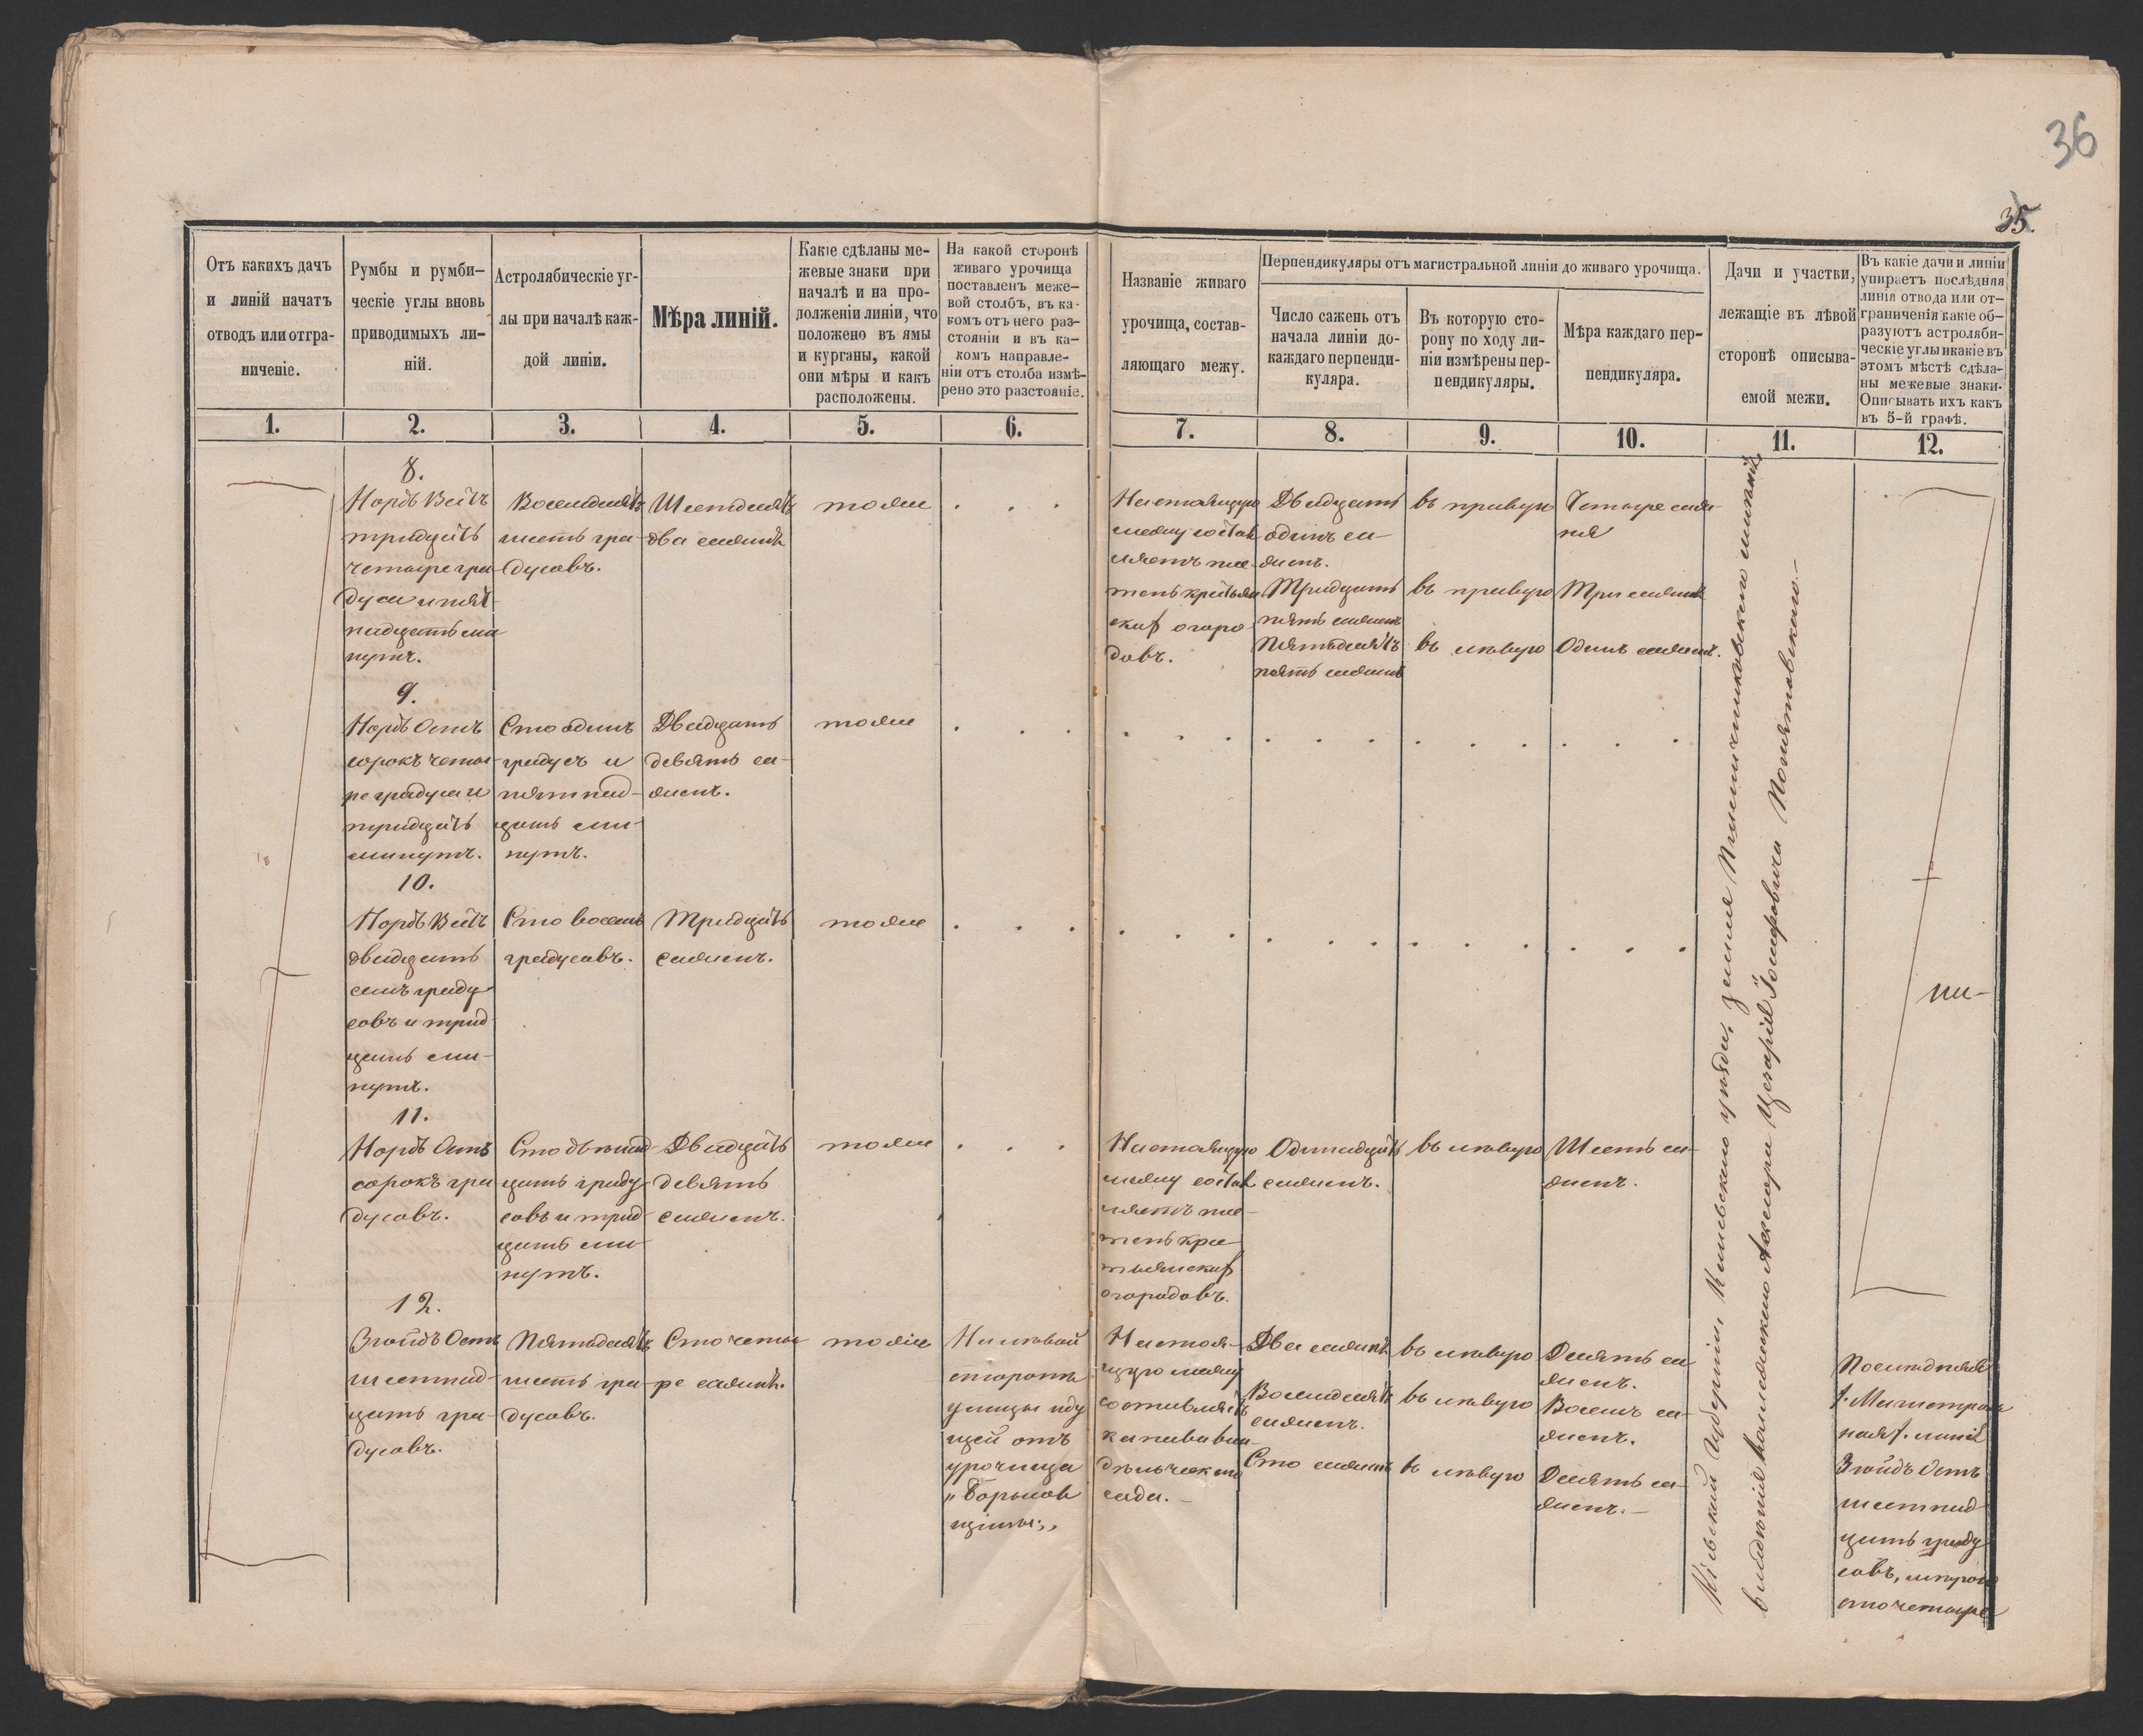 36
35.
Отъ какихъ дачъ
и линій начатъ
отводъ или отгра-
ниченіе.
Румбы и румби-
ческіе углы вновь
приводимыхъ ли-
ній.
Астролябическіе уг-
лы при началѣ каж-
дой линіи.
Мѣра линій.
Какіе сдѣланы ме-
жевые знаки при
началѣ и на про-
долженіи линіи, что
положено въ ямы
и курганы, какой
они мѣры и какъ
расположены.
На какой сторонѣ
живаго урочища
поставленъ меже-
вой столбъ, въ ка-
комъ отъ него раз-
стояніи и въ ка-
комъ направле-
ніи отъ столба измѣ-
рено это разстояніе.
Названіе живаго
урочища, состав-
ляющаго межу.
Перпендикуляры отъ магистральной линіи до живаго урочища.
Число сажень отъ
начала линіи до-
каждаго перпенди-
куляра.
Въ которую сто-
рону по ходу ли-
ніи измѣрены пер-
пендикуляры.
Мѣра каждаго пер-
пендикуляра.
Дачи и участки,
лежащіе въ лѣвой
сторонѣ описыва-
емой межи.
Въ какіе дачи и линіи
упираетъ послѣдняя
линія отвода или от-
граниченія какіе об-
разуютъ астроляби-
ческіе углы и какіе въ
этомъ мѣстѣ сдѣла-
ны межевые знаки.
Описывать ихъ какъ
въ 5-й графѣ.
1.
2.
3.
4.
5.
6.
7.
8.
9.
10.
11.
12.
8.
Нордъ Вестъ
тридцать
четыре гра-
дуса и пят-
надцать ми
нутъ.
Восемдесятъ
шесть гра-
дусовъ.
Шестдесятъ
два сажня
тоже
Настоящую
межу состав
ляетъ пле-
тень крестьян
скихъ огоро
довъ.
Двадцать
одинъ са-
жень.
Тридцать
пять сажень
Пятьдесятъ
пять сажень
въ правую
въ правую
въ лѣвую
Четыре саж-
ня
Три сажня
Одинъ сажень.
9.
Нордъ Остъ
сорокъ четы-
ре градуса и
тридцать
минутъ.
Сто одинъ
градусъ и
пятнад-
цать ми-
нутъ.
Двадцать
девять са-
жень.
тоже
10.
Нордъ Вестъ
двадцать
семь граду
совъ и трид
цать ми-
нутъ.
Сто восемь
градусовъ.
Тридцать
сажень.
тоже
11.
Нордъ Остъ
сорокъ гра
дусовъ.
Сто двѣнад-
цать граду
совъ и трид
цать ми-
нутъ.
Двадцать
девять
сажень.
тоже
Настоящую
межу состав
ляетъ пле-
тень крес
тьянскихъ
огородовъ.
Одинадцать
сажень.
въ лѣвую
Шесть са-
жень.
12.
Зюйдъ Остъ
шестнад-
цать гра-
дусовъ.
Пятьдесятъ
шесть гра-
дусовъ.
Сто четы
ре сажня.
тоже
На лѣвой
сторонѣ
улицы иду
щей отъ
урочища
щины„
Настоя-
щую межу
составляетъ
канава вла-
дѣльческаго
сада.
Два сажня
Восемдесятъ
сажень.
Сто сажень
въ лѣвую
въ лѣвую
въ лѣвую
Десять са
жень.
Восемь са-
жень.
Десять са-
жень.
Кіевской Губерніи, Кіевскаго уѣзда, земля
владѣнія Коллежскаго Ассесора Цезарія Іосифовича Понятовскаго.
Послѣдняя
/: Магистраль
ная :/ линія
Зюйдъ Остъ
шестнад
цать граду
совъ, мѣрою
сто четыре